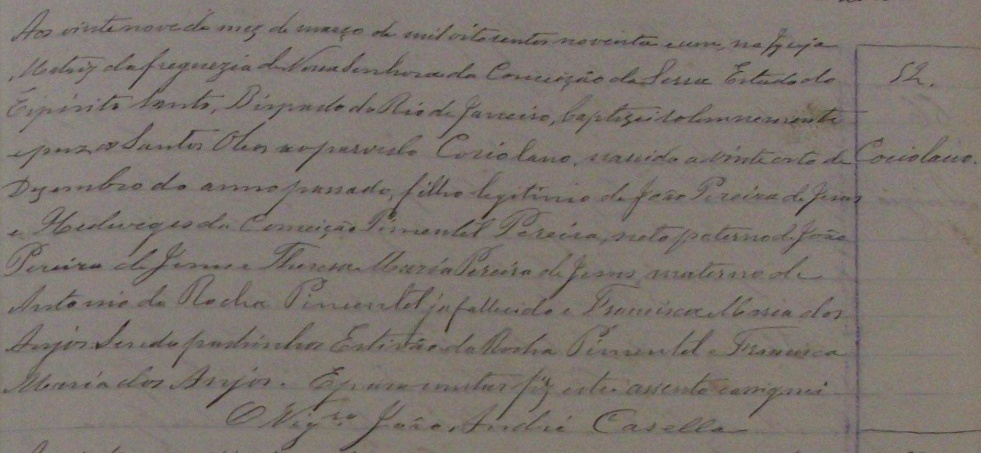 Aos vinte nove do mez de março de mil oitocentos noventa e um, na Igreja
Matriz da freguezia de Nossa Senhora da Conceição da Serra Estado do
Espirito Santo, Bispado do Rio de Janeiro, baptizei solemnemente
e puz os Santos Oleos ao parvulo Coriolano, nascido a vinte oito de
Dezembro do anno passado, filho legitimo de João Pereira de Jesus
e Hedweges da Conceição Pimentel Pereira, neto paterno de João
Pereira de Jesus e Thereza Maria Pereira de Jesus, materno de
Antonio da Rocha Pimentel já fallecido e Francisca Maria dos
Anjos. Sendo padrinhos Estevão da Rocha Pimentel e Francisca
Maria dos Anjos. E para constar fiz este assento e assignei
O Vigro João André Casella
52.
Coriolano.